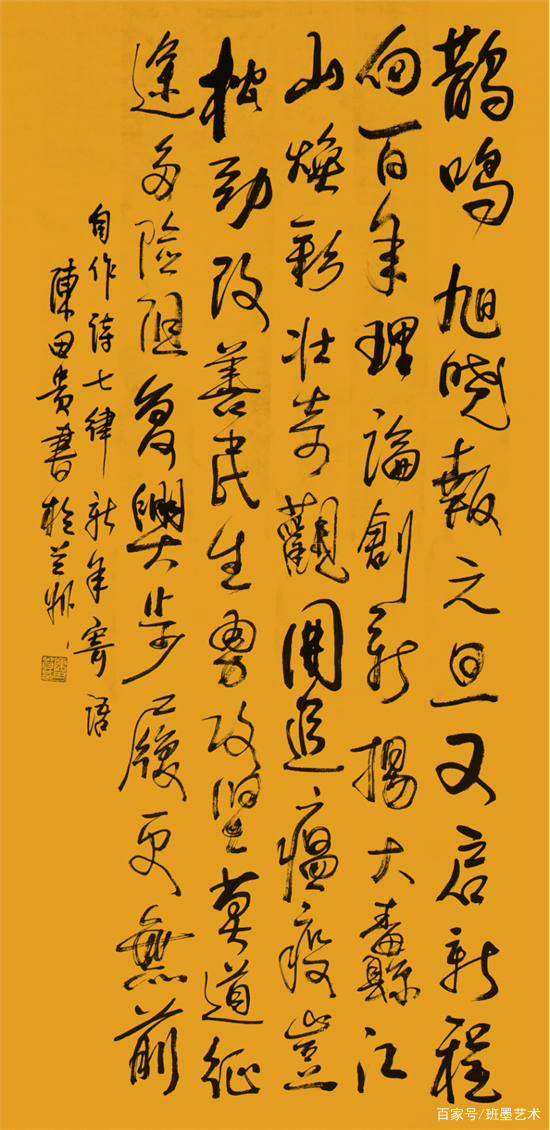 鵲鳴旭曉報元旦又启新程
向百年理論創新揚大纛江
山煥彩壯奇觀圍追瘟疫豈
松勁改善民生勇攻堅莫道征
途多險阻復興步履更無前
自作詩七律新年寄語
陳田貴書於兰州
百家号/班墨艺术